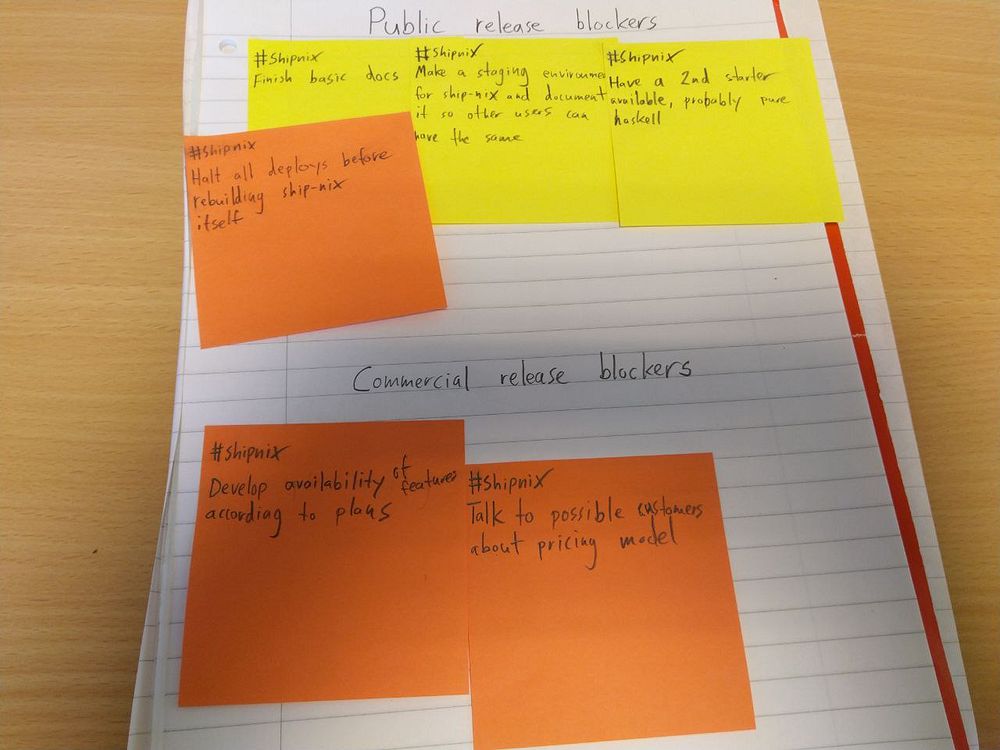 Public release blockers
#Shipnix
Finish basic docs
#Shipnix
Make a staging environme
for ship-nix and document
it so other users can
have the same
#Shipnix
Have a 2nd starter
available, probably pure
haskell
#Shipnix
Halt all deploys before
rebuilding ship-nix
itself
Commercial release blockers
#Shipnix
Develop availability of features
according to plans
#Shipnix
Talk to possible customers
about pricing model